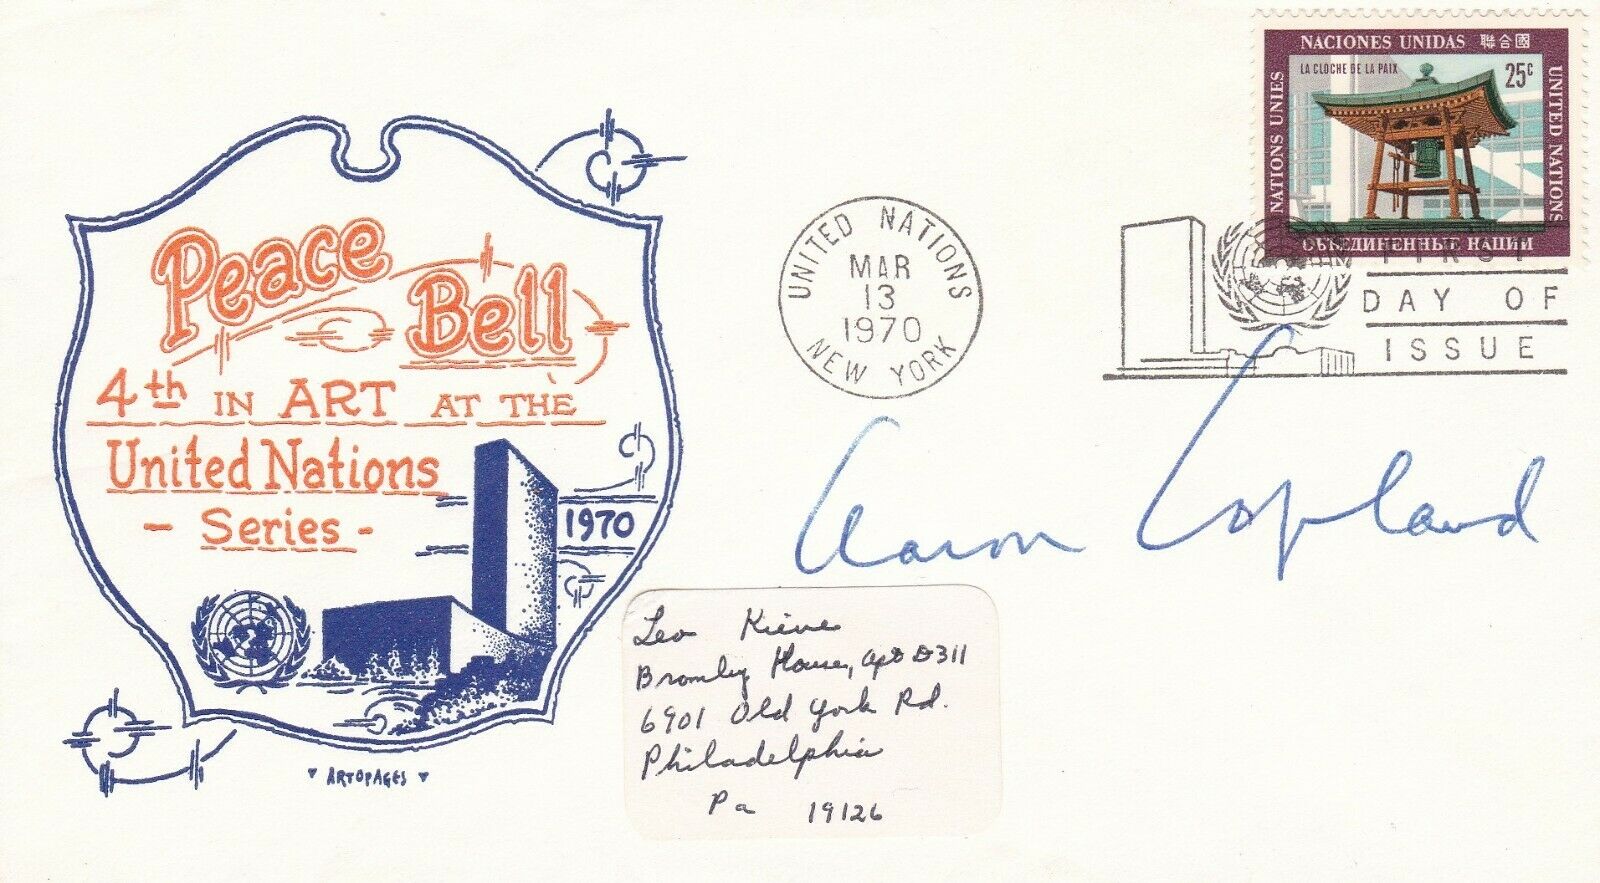 Peace
Bell
4th IN ART AT THE
United Nations
- Series -
1970
ARTOPAGES
UNITED NATIONS
MAR
13
1970
NEW YORK
NACIONES UNIDAS 聯合國
LA CLOCHE DE LA PAIX 25c
NATIONS UNIES
UNITED NATIONS
ОБЪЕДИНЕННЫЕ НАЦИИ
FIRST
DAY OF
ISSUE
Aaron Copland
Leo Kieve
Bromley House, Apt D311
6901 Old York Rd.
Philadelphia
Pa 19126